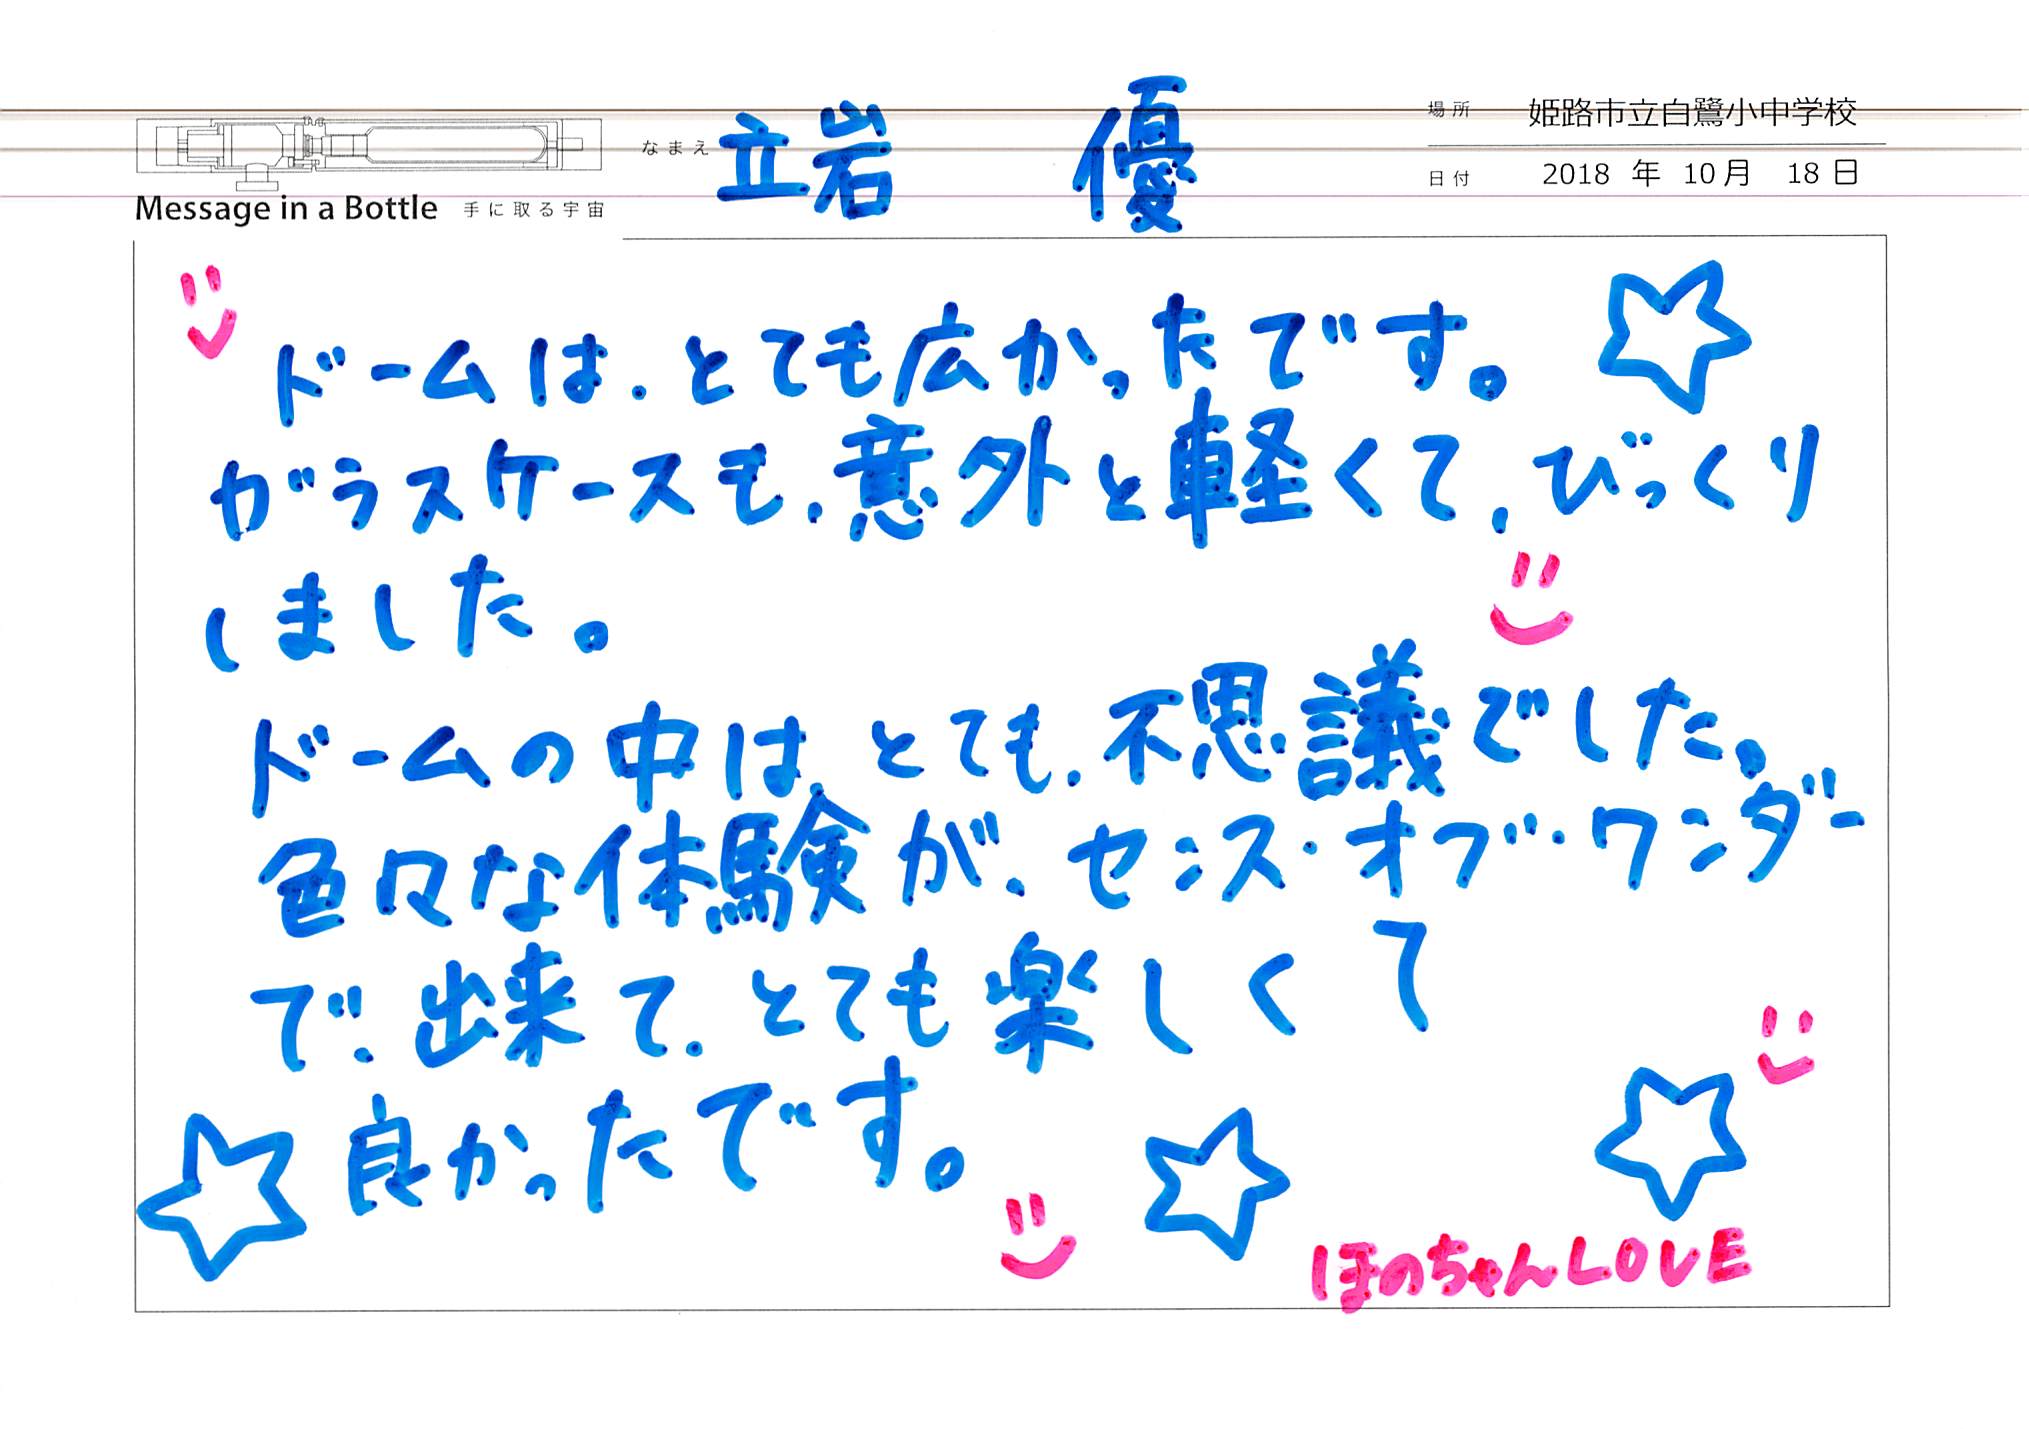 なまえ 立岩 優
場所 姫路市立白鷺小中学校
日付 2018 年 10月 18日
Message in a Bottle 手に取る宇宙
ドームは、とても広かったです。
ガラスケースも、意外と軽くて、びっくり
しました。
ドームの中は とても、不思議でした。
色々な体験が、センス・オブ・ワンダー
で、出来て、とても楽しくて
良かったです。
ほのちゃんLOVE